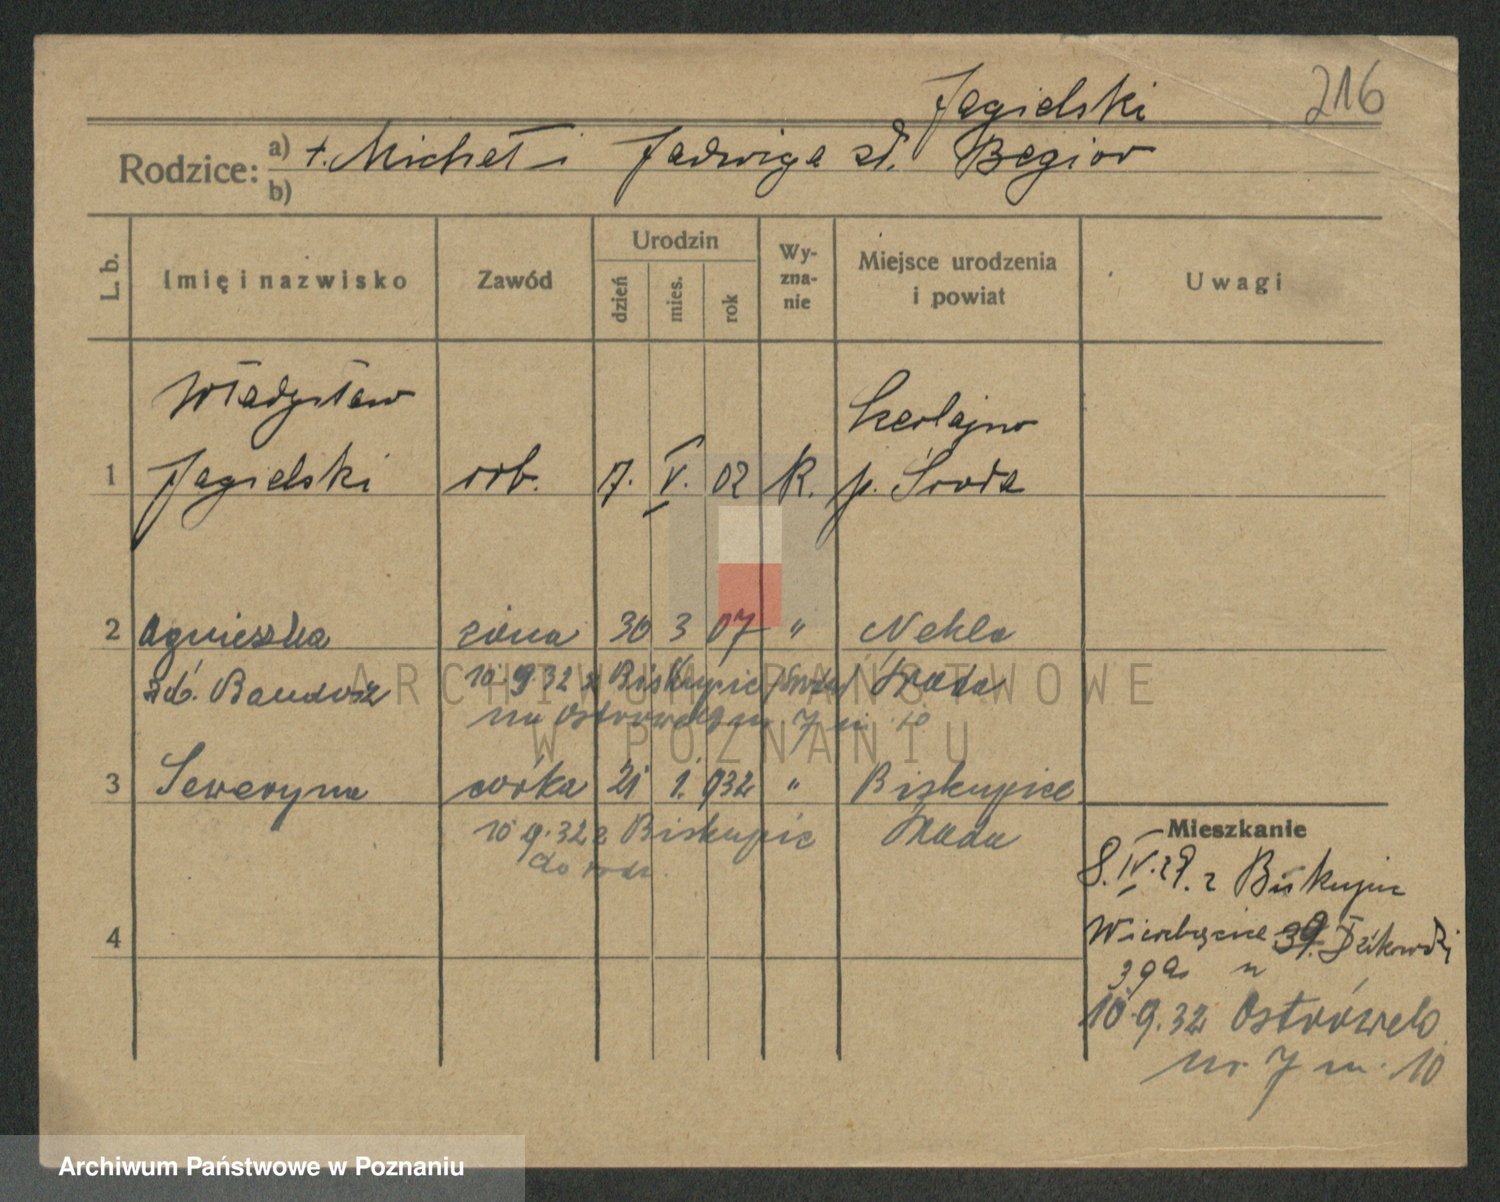 216
Jagielski
Rodzice: a) +. Michał i Jadwiga zd.
b)
L. b. Imię i nazwisko Zawód Urodzin dzień mies. rok Wyznanie Miejsce urodzenia i powiat Uwagi
Władysław
1 Jagielski rob. 7. V. 02 R. p. Środa
2 Agnieszka żona 30 3 07 " Nekla
zd. 10.9.32 z Biskupic Środa
na Ostrówek nr 7 m. 10
3 Seweryna córka 21 1. 932 " Biskupice
10.9.32 z Biskupic Środa
do rodz.
4
Mieszkanie
8. IV. 29. z Biskupic
Wierzbięcice 39.
39a
10.9.32 Ostrówek
nr. 7 m. 10
ARCHIWUM PAŃSTWOWE
W POZNANIU
Archiwum Państwowe w Poznaniu